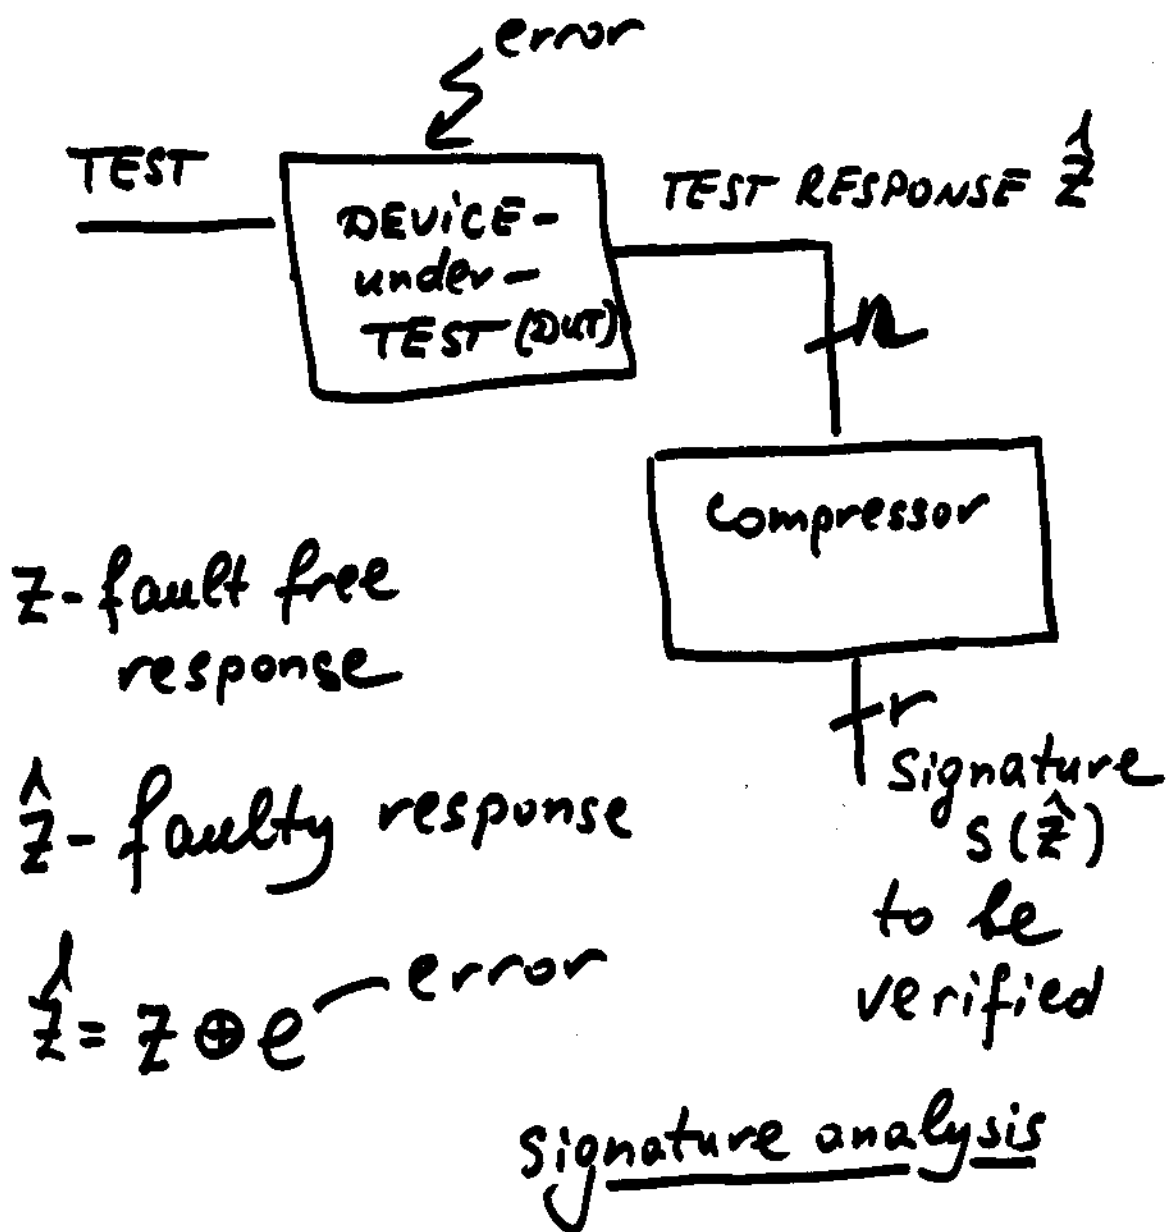 error
TEST
DEVICE-
under-
TEST (DUT)
TEST RESPONSE ẑ
n
Compressor
r
Signature
S(ẑ)
to be
verified
z - fault free
response
ẑ - faulty response
ẑ = z ⊕ e error
Signature analysis